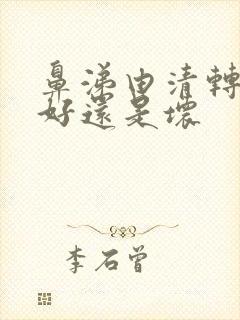 鼻涕由清轉
好還是壞
李石曾